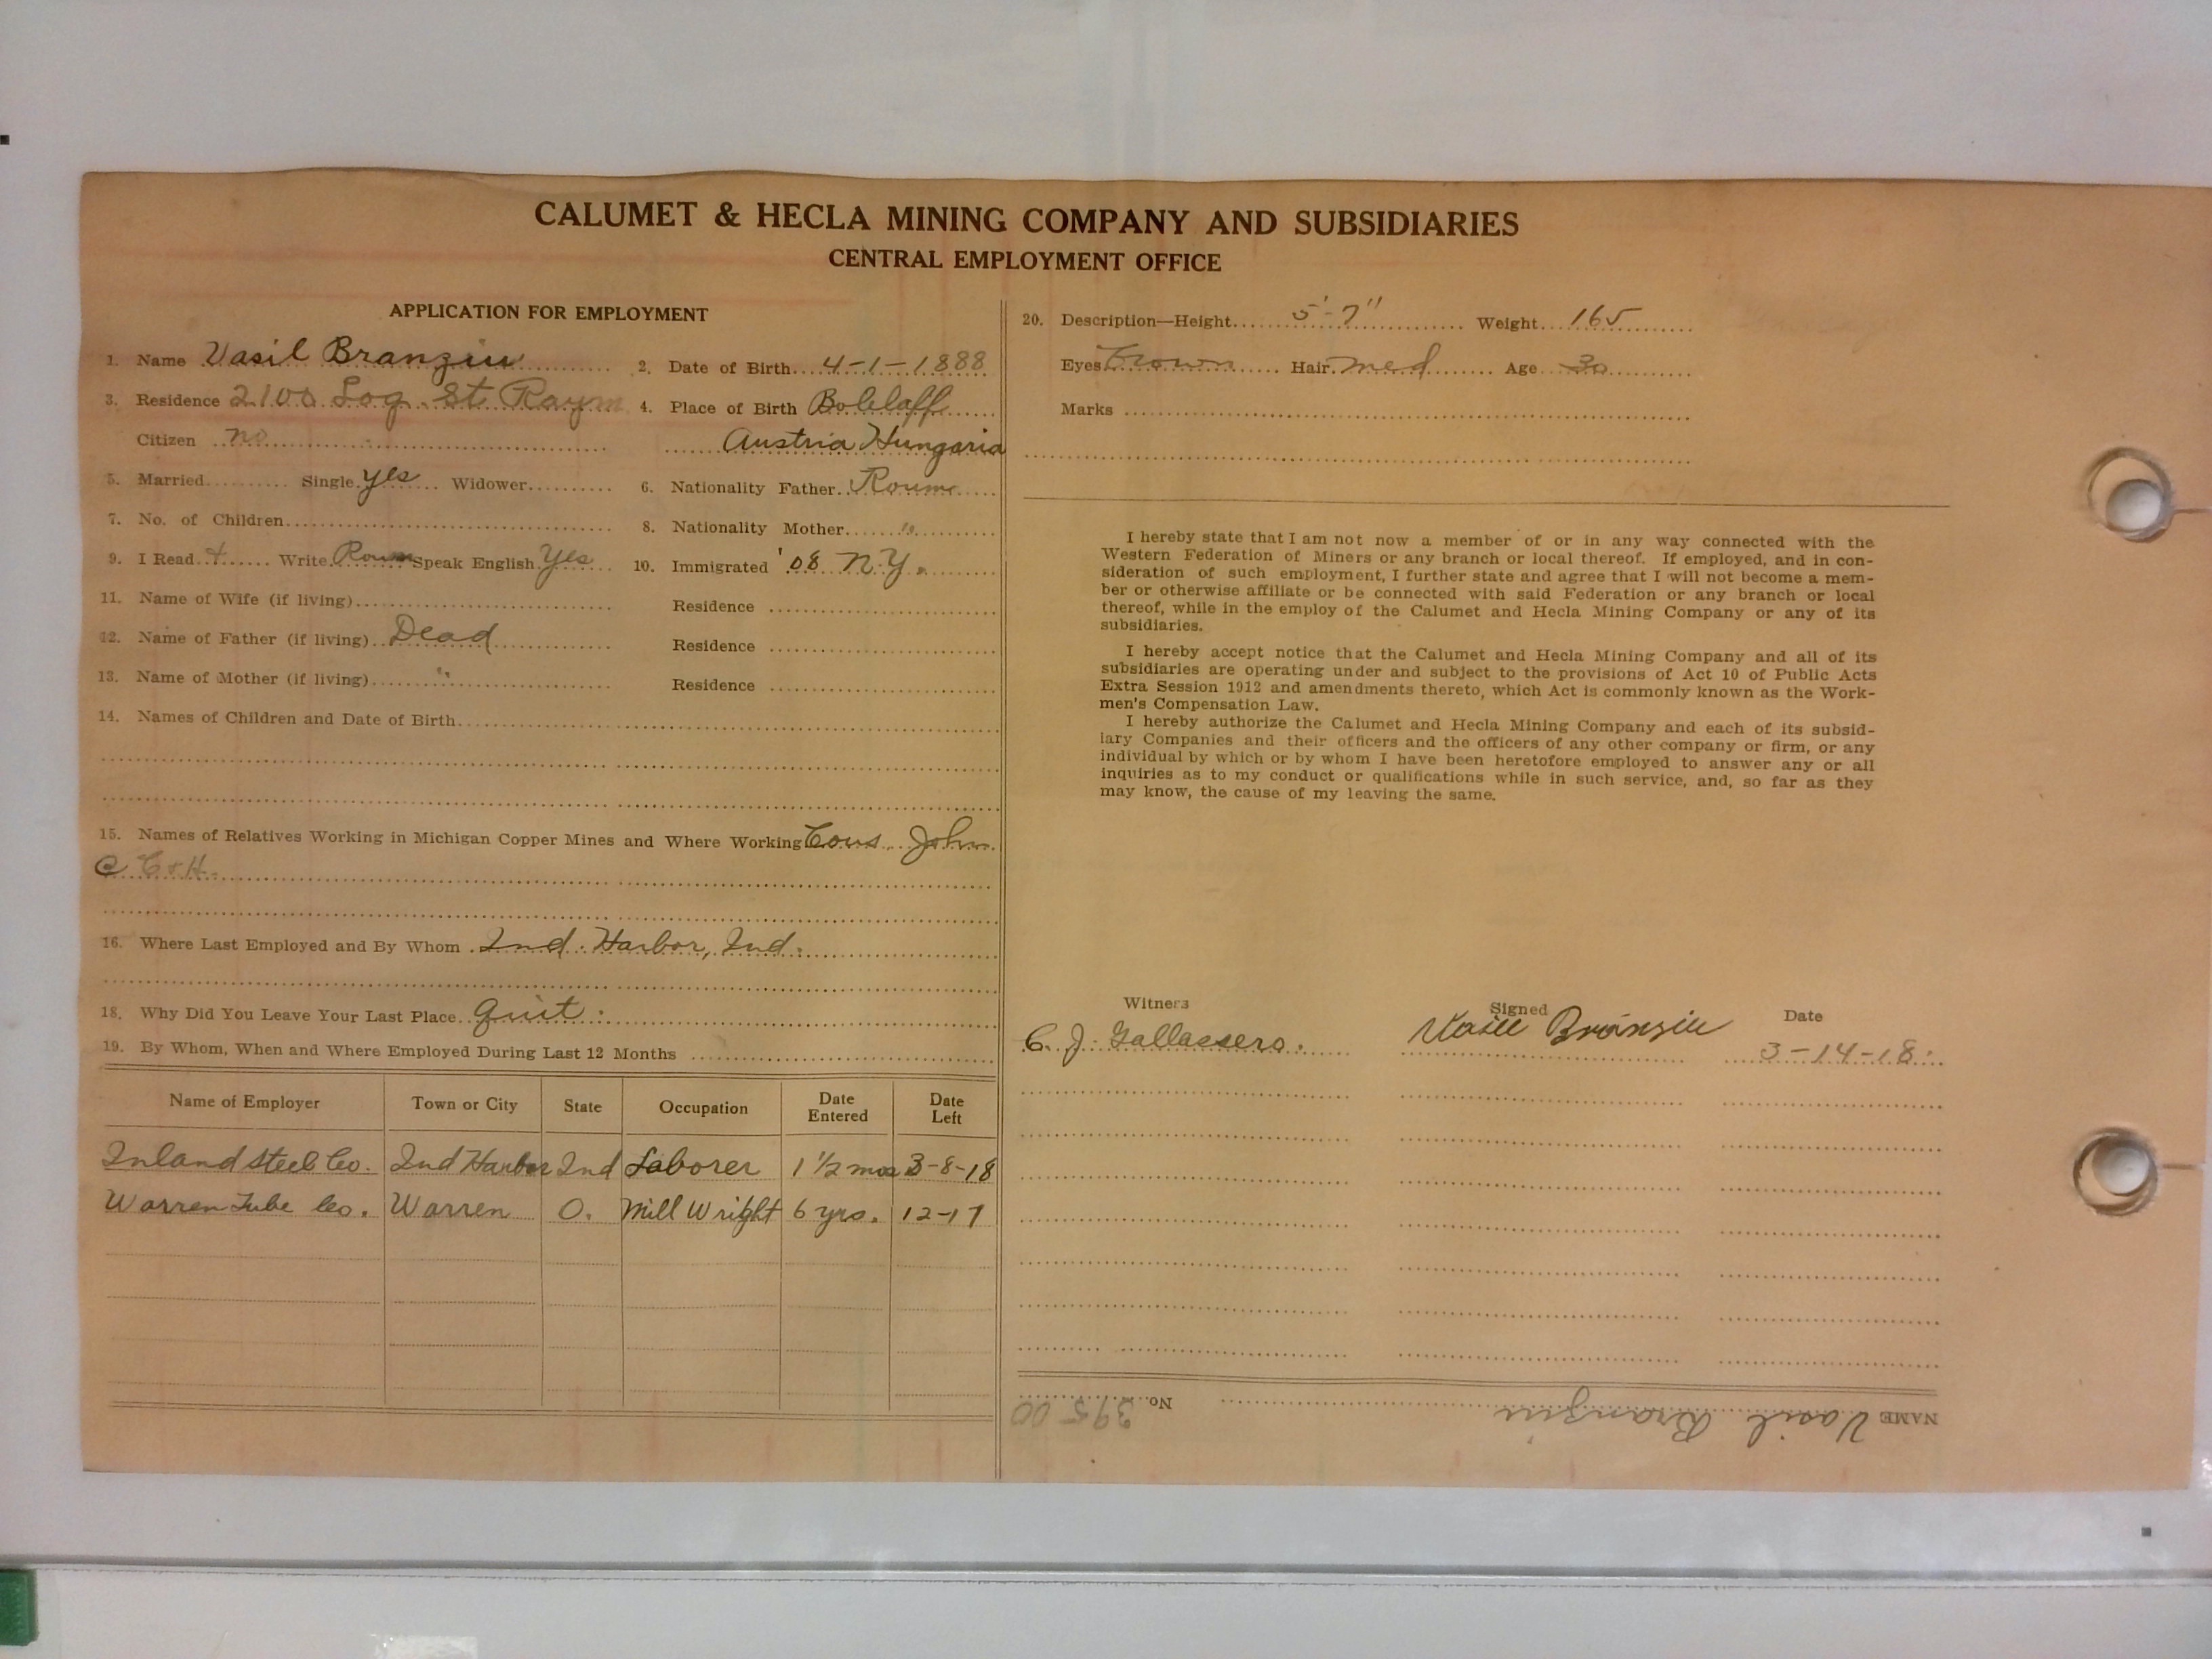 CALUMET & HECLA MINING COMPANY AND SUBSIDIARIES
CENTRAL EMPLOYMENT OFFICE
APPLICATION FOR EMPLOYMENT
1. Name Vasil Branziu 2. Date of Birth 4-1-1888
3. Residence 2100 Log. St Raym 4. Place of Birth
Citizen no Austria Hungaria
5. Married Single yes Widower 6. Nationality Father Roum
7. No. of Children 8. Nationality Mother "
9. I Read + Write Roum Speak English yes 10. Immigrated '08 N.Y.
11. Name of Wife (if living) Residence
12. Name of Father (if living) Dead Residence
13. Name of Mother (if living) " Residence
14. Names of Children and Date of Birth
15. Names of Relatives Working in Michigan Copper Mines and Where Working Cous. John
@ C & H.
16. Where Last Employed and By Whom Ind. Harbor, Ind.
18. Why Did You Leave Your Last Place quit.
19. By Whom, When and Where Employed During Last 12 Months
Name of Employer Town or City State Occupation Date Entered Date Left
Inland Steel Co. Ind Harbor Ind Laborer 1 1/2 mos 3-8-18
Warren Tube Co. Warren O. Mill Wright 6 yrs. 12-17
20. Description—Height 5'-7" Weight 165
Eyes Brown Hair med Age 30
Marks
I hereby state that I am not now a member of or in any way connected with the
Western Federation of Miners or any branch or local thereof. If employed, and in con-
sideration of such employment, I further state and agree that I will not become a mem-
ber or otherwise affiliate or be connected with said Federation or any branch or local
thereof, while in the employ of the Calumet and Hecla Mining Company or any of its
subsidiaries.
I hereby accept notice that the Calumet and Hecla Mining Company and all of its
subsidiaries are operating under and subject to the provisions of Act 10 of Public Acts
Extra Session 1912 and amendments thereto, which Act is commonly known as the Work-
men's Compensation Law.
I hereby authorize the Calumet and Hecla Mining Company and each of its subsid-
iary Companies and their officers and the officers of any other company or firm, or any
individual by which or by whom I have been heretofore employed to answer any or all
inquiries as to my conduct or qualifications while in such service, and, so far as they
may know, the cause of my leaving the same.
Witness Signed Date
C. J. Gallassero. Vasile Branziu 3-14-18
NAME Vasil Branziu No. 39500